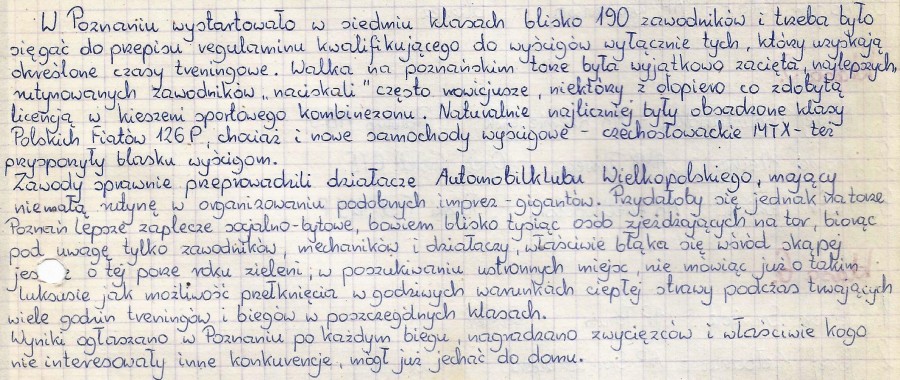 W Poznaniu wystartowało w siedmiu klasach blisko 190 zawodników i trzeba było
sięgać do przepisu regulaminu kwalifikującego do wyścigów wyłącznie tych, który uzyskają
określone czasy treningowe. Walka na poznańskim torze była wyjątkowo zacięta, najlepszych,
rutynowanych zawodników „naciskali" często nowicjusze, niektóry z dopiero co zdobytą
licencją w kieszeni sportowego kombinezonu. Naturalnie najliczniej były obsadzone klasy
Polskich Fiatów 126P, chociaż i nowe samochody wyścigowe - czechosłowackie MTX - też
przysporzyły blasku wyścigom.
Zawody sprawnie przeprowadzili działacze Automobilklubu Wielkopolskiego, mający
niemałą rutynę w organizowaniu podobnych imprez-gigantów. Przydałoby się jednak na torze
Poznań lepsze zaplecze socjalno-bytowe, bowiem blisko tysiąc osób zjeżdżających na tor, biorąc
pod uwagę tylko zawodników, mechaników i działaczy, właściwie błąka się wśród skąpej
o tej porze roku zieleni, w poszukiwaniu ustronnych miejsc, nie mówiąc już o takim
luksusie jak możliwość przełknięcia w godziwych warunkach ciepłej strawy podczas trwających
wiele godzin treningów i biegów w poszczególnych klasach.
Wyniki ogłaszano w Poznaniu po każdym biegu, nagradzano zwycięzców i właściwie kogo
nie interesowały inne konkurencje, mógł już jechać do domu.